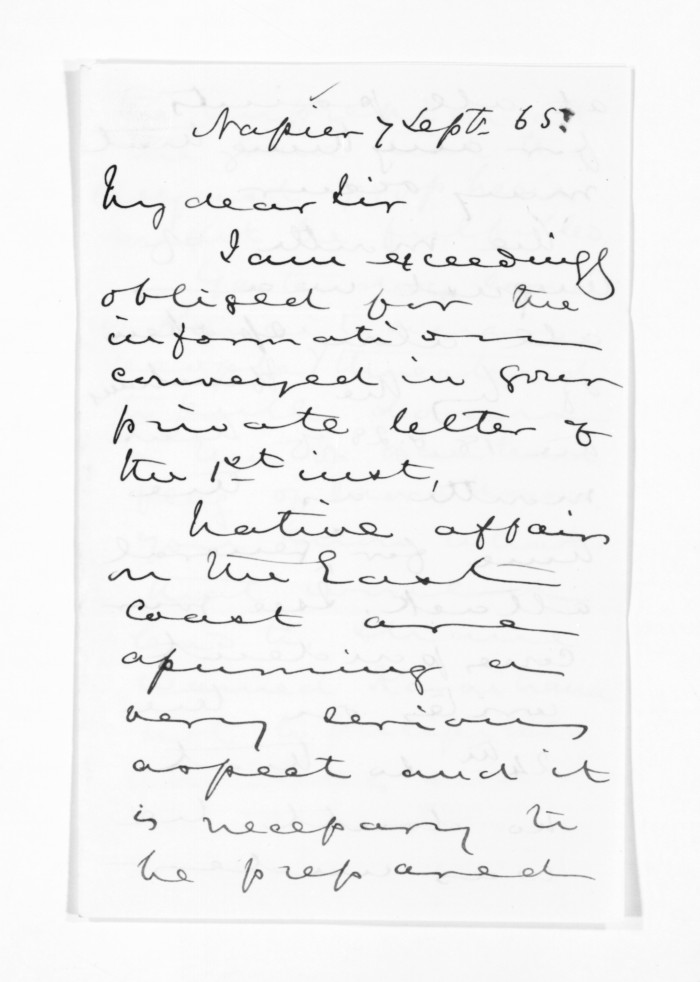 Napier 7 Sept. 65.
My dear Sir
I am exceedingly
obliged for the
information
conveyed in your
private letter of
the 1st inst,
Native affairs
on the East
coast are
assuming a
very serious
aspect and it
is necessary to
be prepared